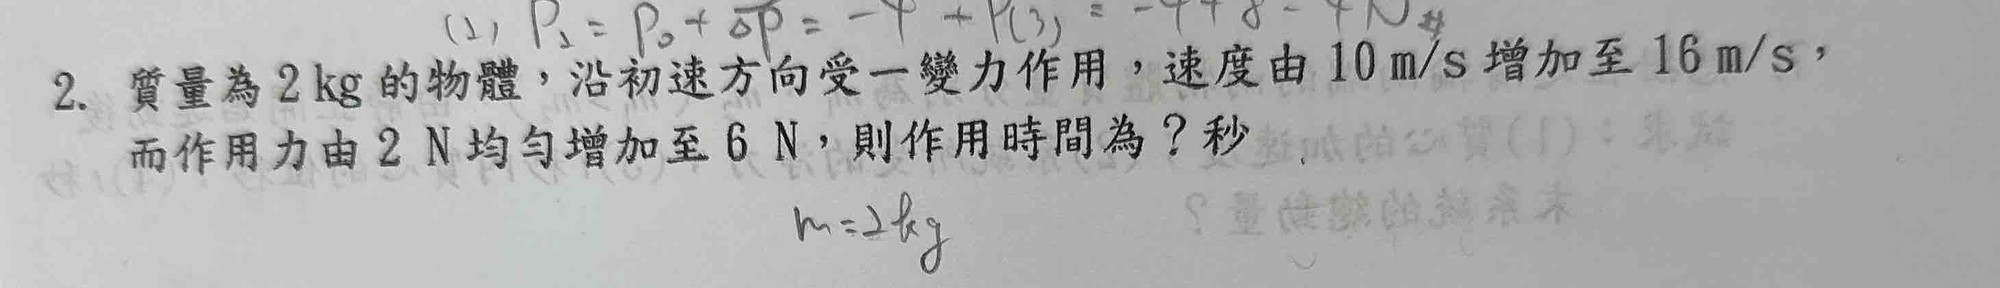 (2) P₂ = P₀ + ΔP = -4 + = -4+8 = 4N #
2. 質量為 2 kg 的物體，沿初速方向受一變力作用，速度由 10 m/s 增加至 16 m/s，
而作用力由 2 N 均勻增加至 6 N，則作用時間為？秒
m=2kg